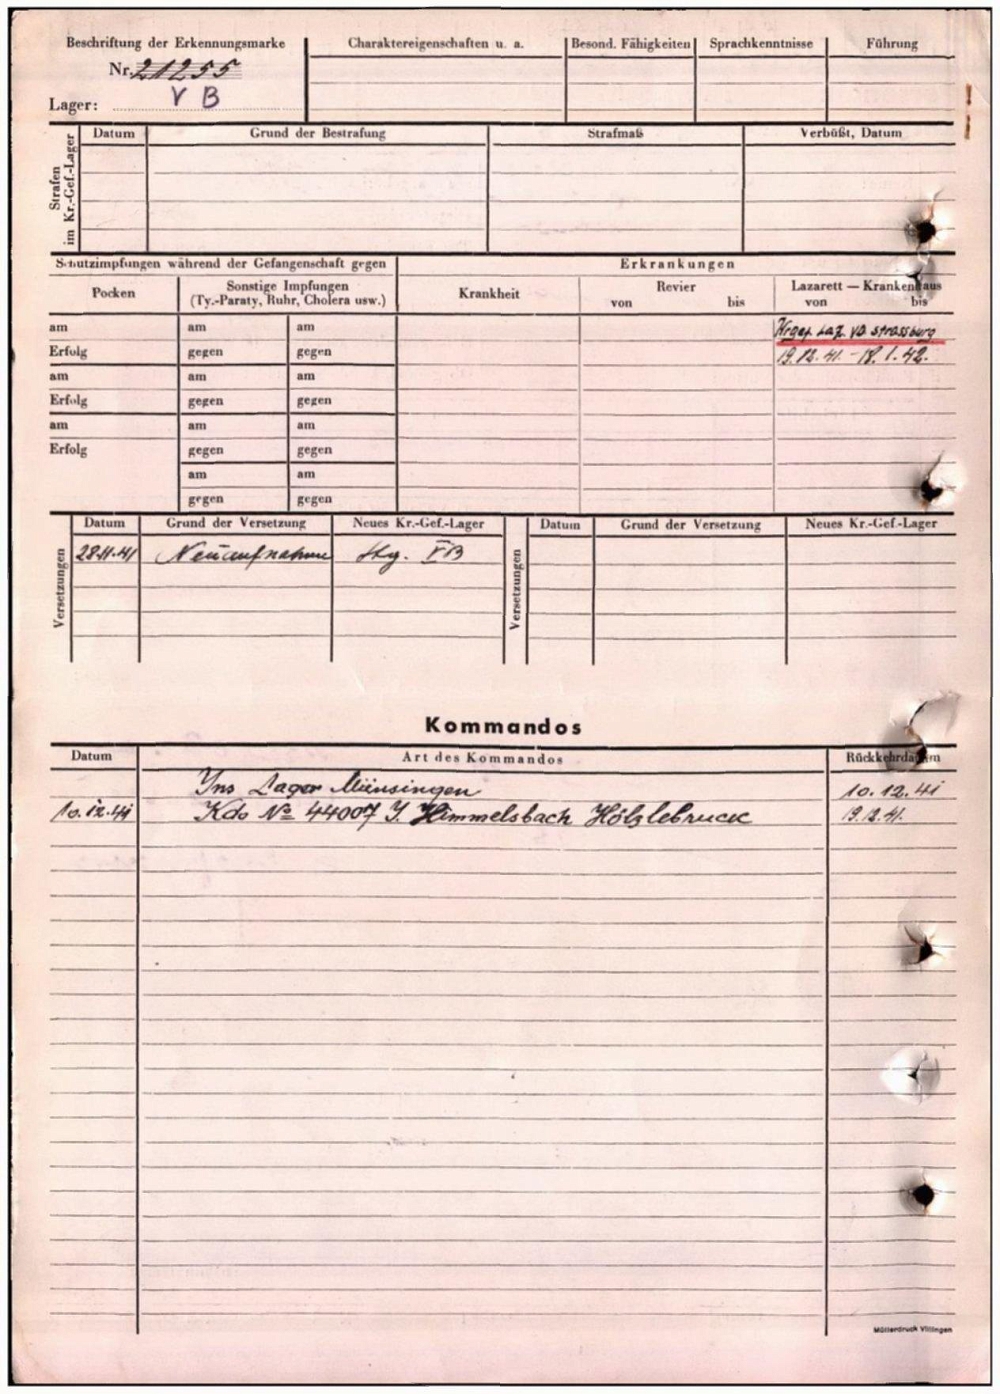 Beschriftung der Erkennungsmarke
Nr. 21255
Lager: V B
Charaktereigenschaften u. a.
Besond. Fähigkeiten
Sprachkenntnisse
Führung
Strafen
im Kr.-Gef.-Lager
Datum
Grund der Bestrafung
Strafmaß
Verbüßt, Datum
Schutzimpfungen während der Gefangenschaft gegen
Erkrankungen
Pocken
Sonstige Impfungen
(Ty.-Paraty, Ruhr, Cholera usw.)
Krankheit
Revier
von bis
Lazarett — Krankenhaus
von bis
am am am
Erfolg gegen gegen
am am am
Erfolg gegen gegen
am am am
Erfolg gegen gegen
am am
gegen gegen
Krgef. Laz. VD Strassburg
19.12.41. - 18.1.42.
Versetzungen
Datum Grund der Versetzung Neues Kr.-Gef.-Lager
28.11.41 Neuaufnahme Stg. VB
Versetzungen
Datum Grund der Versetzung Neues Kr.-Gef.-Lager
Kommandos
Datum Art des Kommandos Rückkehrdatum
Ins Lager Münsingen 10.12.41
10.12.41 Kdo № 44007 J. Himmelsbach Hölzlebruck
Müllerdruck Villingen